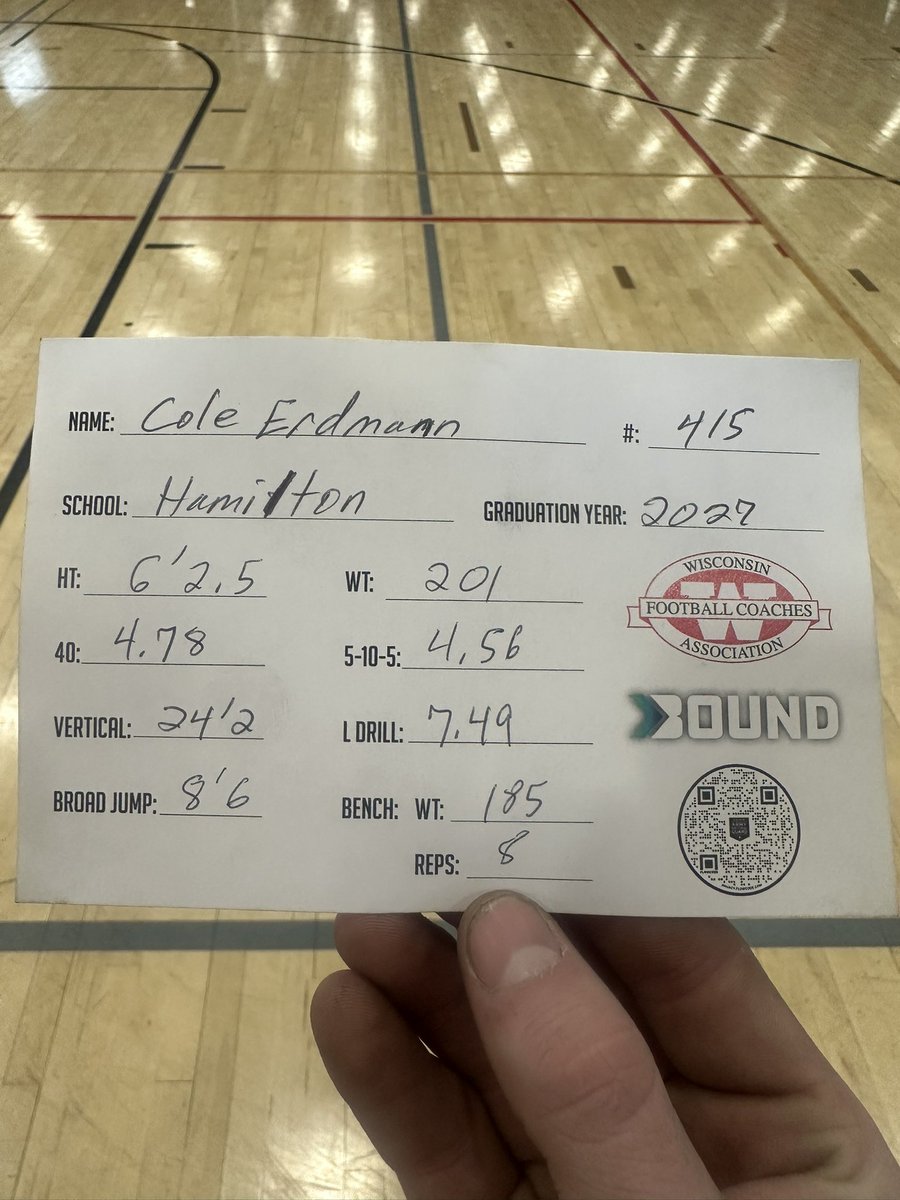 NAME: Cole Erdmann #: 415
SCHOOL: Hamilton GRADUATION YEAR: 2027
HT: 6'2.5 WT: 201
WISCONSIN
FOOTBALL COACHES
ASSOCIATION
40: 4.78 5-10-5: 4.56
VERTICAL: 24'2 L DRILL: 7.49
BOUND
BROAD JUMP: 8'6 BENCH: WT: 185
REPS: 8